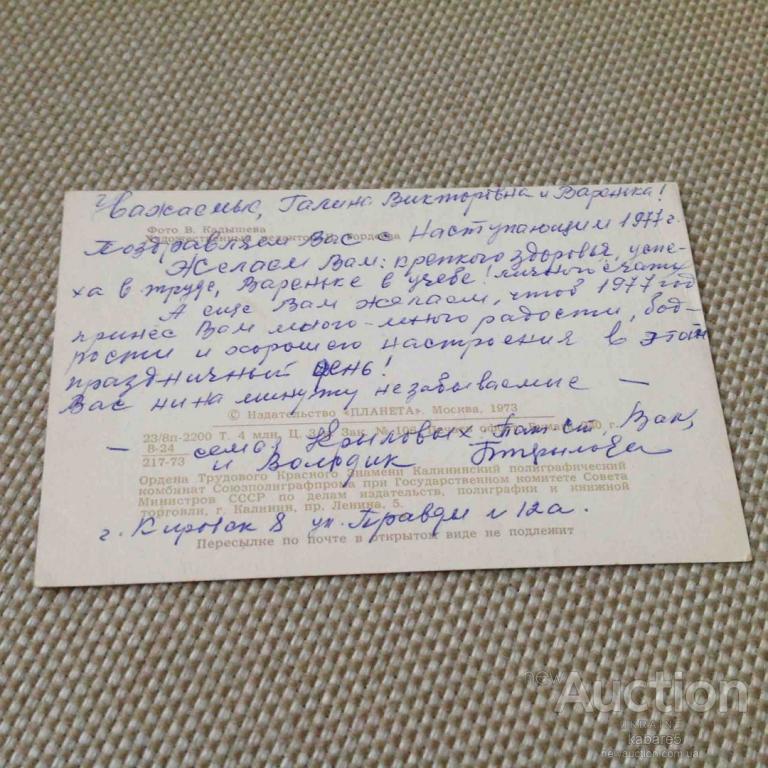 Уважаемые, Галина Викторовна и Варенька!
Фото В. Кадышева
Поздравляем Вас с Наступающим 1977 г.
Желаем Вам: крепкого здоровья, успе-
ха в труде, Вареньке в учебе! личного счастья
А еще Вам желаем, чтоб 1977 год
принес Вам много-много радости, бод-
рости и хорошего настроения в этот
праздничный день!
Вас ни на минуту незабываемые —
© Издательство «ПЛАНЕТА». Москва, 1973
— семья Крыловых
23/8п-2200 Т. 4 млн, Ц.
8-24
и Володик
217-73
Ордена Трудового Красного Знамени Калининский полиграфический
комбинат Союзполиграфпрома при Государственном комитете Совета
Министров СССР по делам издательств, полиграфии и книжной
торговли, г. Калинин, пр. Ленина, 5.
г. Кировск 8 ул. Правды 12а.
Пересылке по почте в открытом виде не подлежит
new Auction
UKRAINE
kabare5
newauction.com.ua